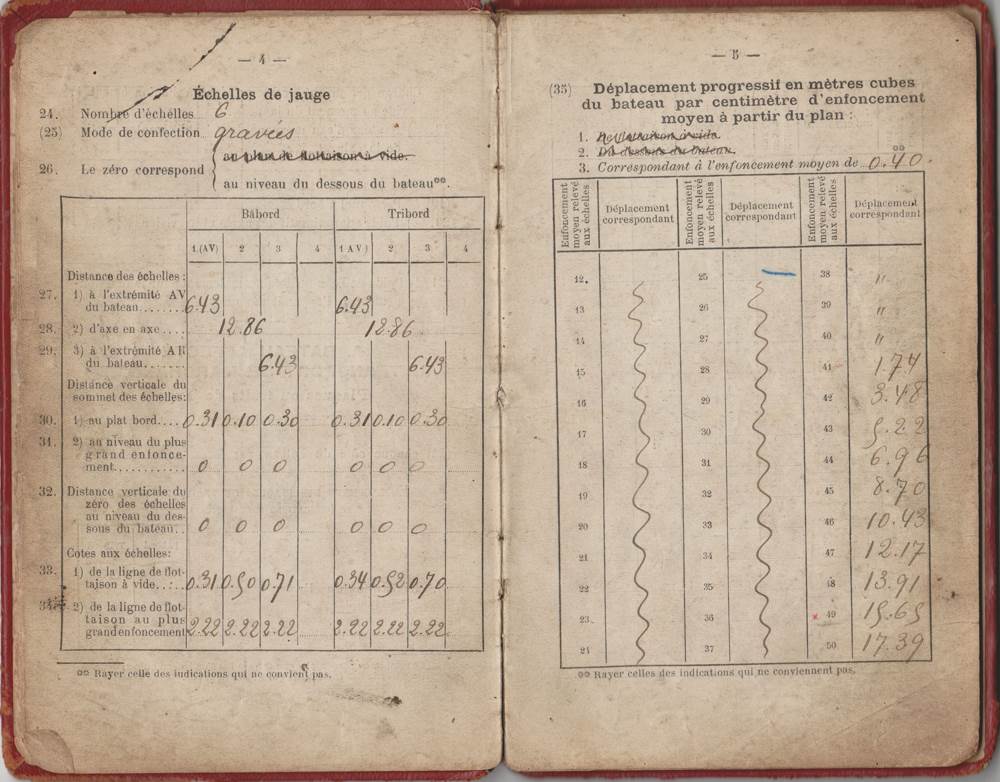 — 4 —
Échelles de jauge
24. Nombre d'échelles 6
(25) Mode de confection gravées
26. Le zéro correspond
au plan de flottaison à vide.
au niveau du dessous du bateau°°.
Bâbord Tribord
1.(AV) 2 3 4 1(AV) 2 3 4
Distance des échelles :
27. 1) à l'extrémité AV
du bateau........ 6.43 6.43
28. 2) d'axe en axe.... 12.86 12.86
29. 3) à l'extrémité AR
du bateau....... 6.43 6.43
Distance verticale du
sommet des échelles:
30. 1) au plat bord.... 0.31 0.10 0.30 0.31 0.10 0.30
31. 2) au niveau du plus
grand enfonce-
ment............ 0 0 0 0 0 0
32. Distance verticale du
zéro des échelles
au niveau du des-
sous du bateau.. 0 0 0 0 0 0
Cotes aux échelles:
33. 1) de la ligne de flot-
taison à vide..:.. 0.31 0.50 0.71 0.34 0.52 0.70
34. 2) de la ligne de flot-
taison au plus
grand enfoncement 2.22 2.22 2.22 2.22 2.22 2.22
°° Rayer celle des indications qui ne convient pas.
— 5 —
(35) Déplacement progressif en mètres cubes
du bateau par centimètre d'enfoncement
moyen à partir du plan :
1. de flottaison à vide
2. Du dessous du bateau.
3. Correspondant à l'enfoncement moyen de °° 0.40.
Enfoncement moyen relevé aux échelles Déplacement correspondant Enfoncement moyen relevé aux échelles Déplacement correspondant Enfoncement moyen relevé aux échelles Déplacement correspondant
12. 25 38 "
13 26 39 "
14 27 40 "
15 28 41 1.74
16 29 42 3.48
17 30 43 5.22
18 31 44 6.96
19 32 45 8.70
20 33 46 10.43
21 34 47 12.17
22 35 48 13.91
23. 36 x 49 15.65
24 37 50 17.39
°° Rayer celles des indications qui ne conviennent pas.